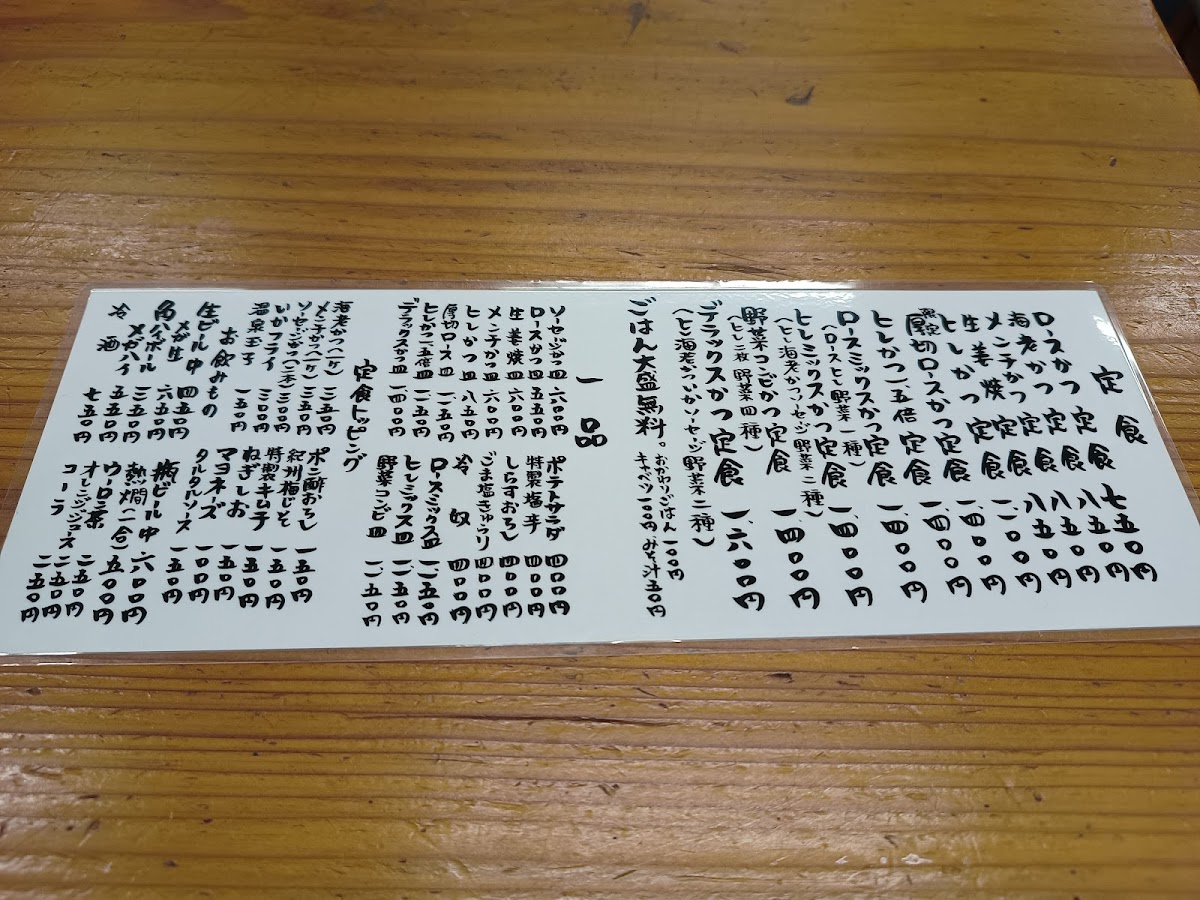 定食
ロースかつ定食 七五〇円
海老かつ定食 八五〇円
メンチかつ定食 八五〇円
生姜焼定食 八五〇円
ヒレかつ定食
厚切ロースかつ定食
ヒレかつ一、五倍定食 一、四〇〇円
ロースミックスかつ定食 一、四〇〇円
（ロースヒレ野菜一種）
ヒレミックスかつ定食
（ヒレ海老かつソーセージ野菜二種）
野菜コンビかつ定食 一、四〇〇円
（ヒレ二枚野菜四種）
デラックスかつ定食 一、六〇〇円
（ヒレ海老かついかソーセージ野菜二種）
ごはん大盛無料。
おかわりごはん一〇〇円
キャベツ一〇〇円、みそ汁五〇円
一品
ソーセージかつ皿 六〇〇円
ロースかつ皿 五五〇円
生姜焼皿 六〇〇円
メンチかつ皿 六〇〇円
ヒレかつ皿 八五〇円
厚切ロース皿 一、二五〇円
ヒレかつ一、五倍皿 一、二五〇円
デラックスかつ皿 一、四〇〇円
ポテトサラダ 四〇〇円
特製塩辛 四〇〇円
しらすおろし 四〇〇円
ごま塩きゅうり 四〇〇円
冷奴 四〇〇円
ロースミックス皿 一、二五〇円
ヒレミックス皿 一、二五〇円
野菜コンビ皿 一、二五〇円
定食トッピング
海老かつ（一ヶ） 三五〇円
メンチかつ（一ヶ） 三五〇円
ソーセージかつ（二本） 三〇〇円
いかフライ 三〇〇円
温泉玉子 一五〇円
ポン酢おろし 一五〇円
紀州梅じそ 一五〇円
特製キムチ 一五〇円
ねぎしお 一五〇円
マヨネーズ 一〇〇円
タルタルソース 一五〇円
お飲みもの
生ビール中 四五〇円
メガ生 六五〇円
角ハイボール 三五〇円
メガハイ 五五〇円
冷酒 七五〇円
瓶ビール中 六〇〇円
熱燗（一合） 五〇〇円
ウーロン茶 二五〇円
オレンジジュース 二五〇円
コーラ 二五〇円